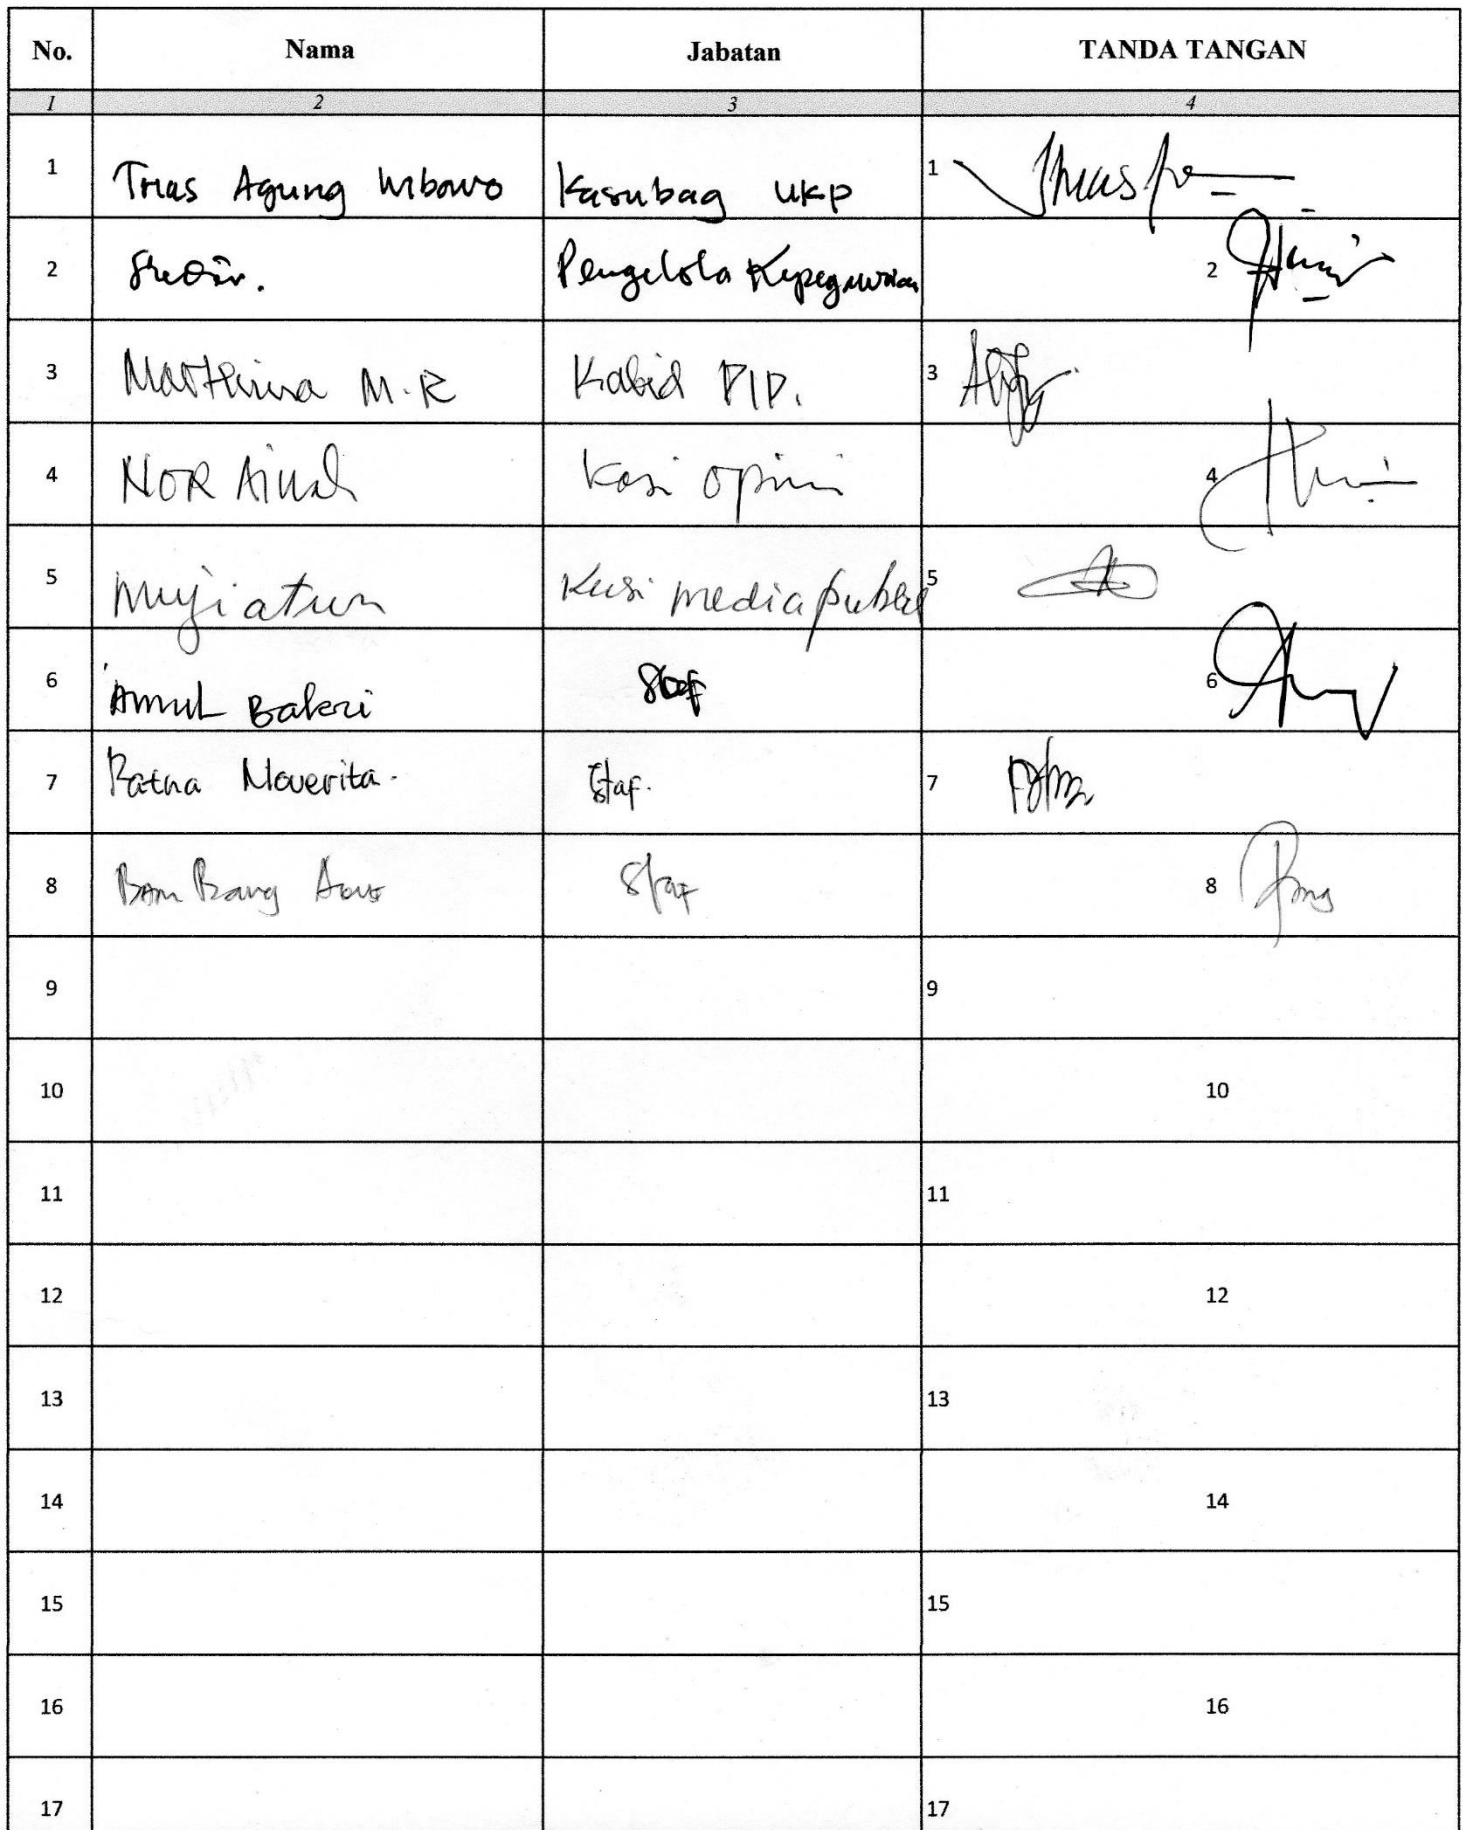 No. Nama Jabatan TANDA TANGAN
1 2 3 4
1 Trias Agung Wibowo Kasubag UKP 1
2 Pengelola Kepegawaian 2
3 Marthina M.R Kabid PIP. 3
4 NOR Ainah Kasi opini 4
5 Mujiatun Kasi media publik 5
6 Amul Bakri Staf 6
7 Ratna Noverita. Staf. 7
8 BamBang Staf 8
9 9
10 10
11 11
12 12
13 13
14 14
15 15
16 16
17 17